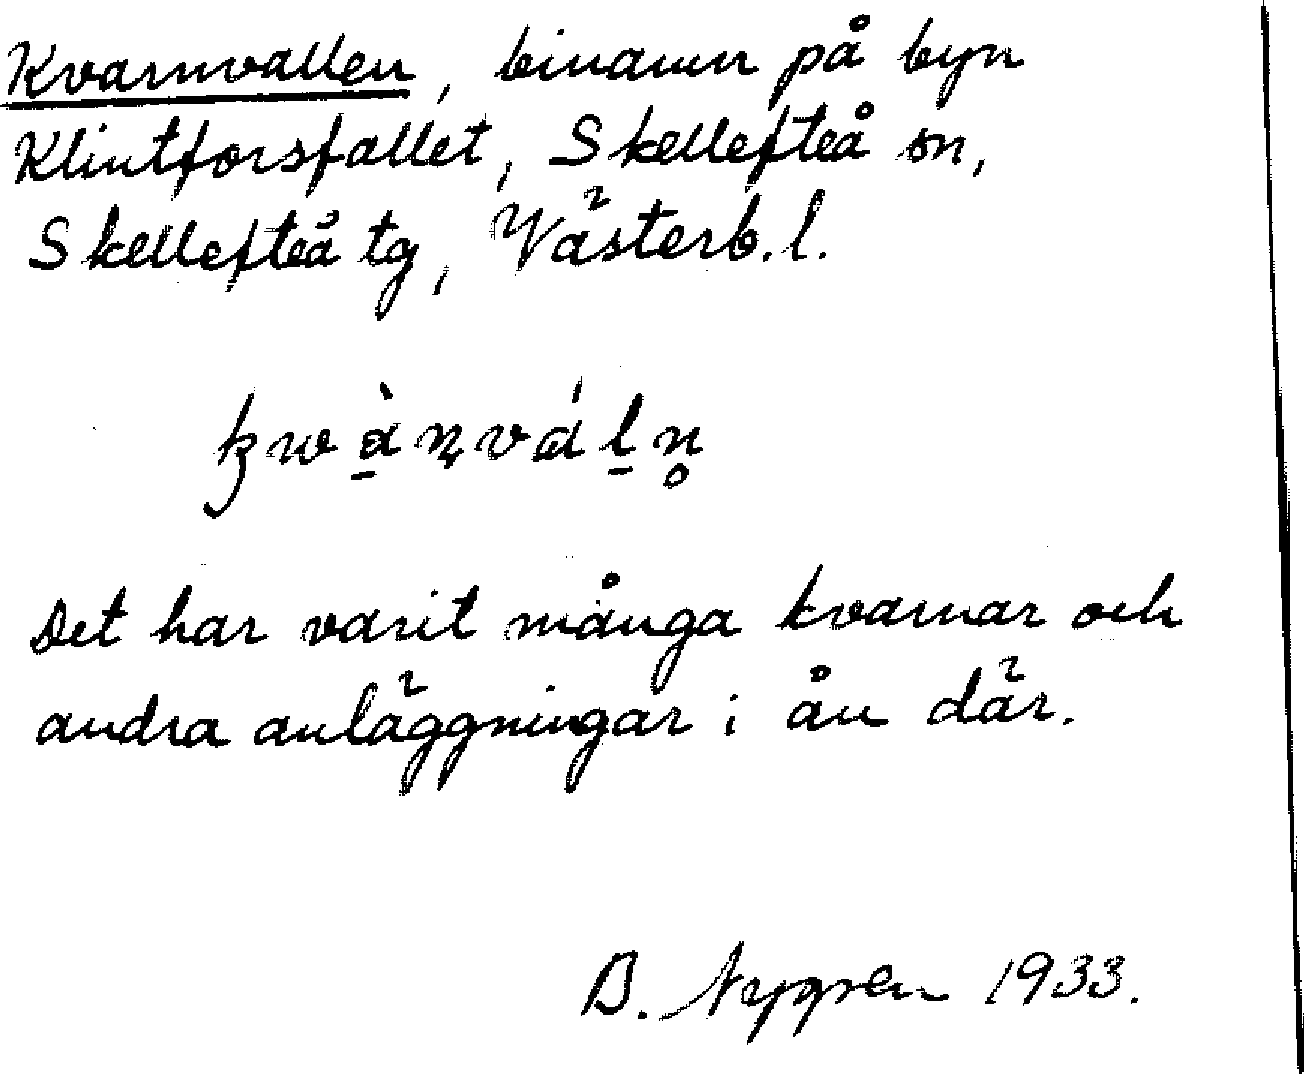 Kvarnvallen, binamn på byn
Klintforsfallet, Skellefteå sn,
Skellefteå tg, Västerb.l.
Det har varit många kvarnar och
andra anläggningar i ån där.
B. Nygren 1933.